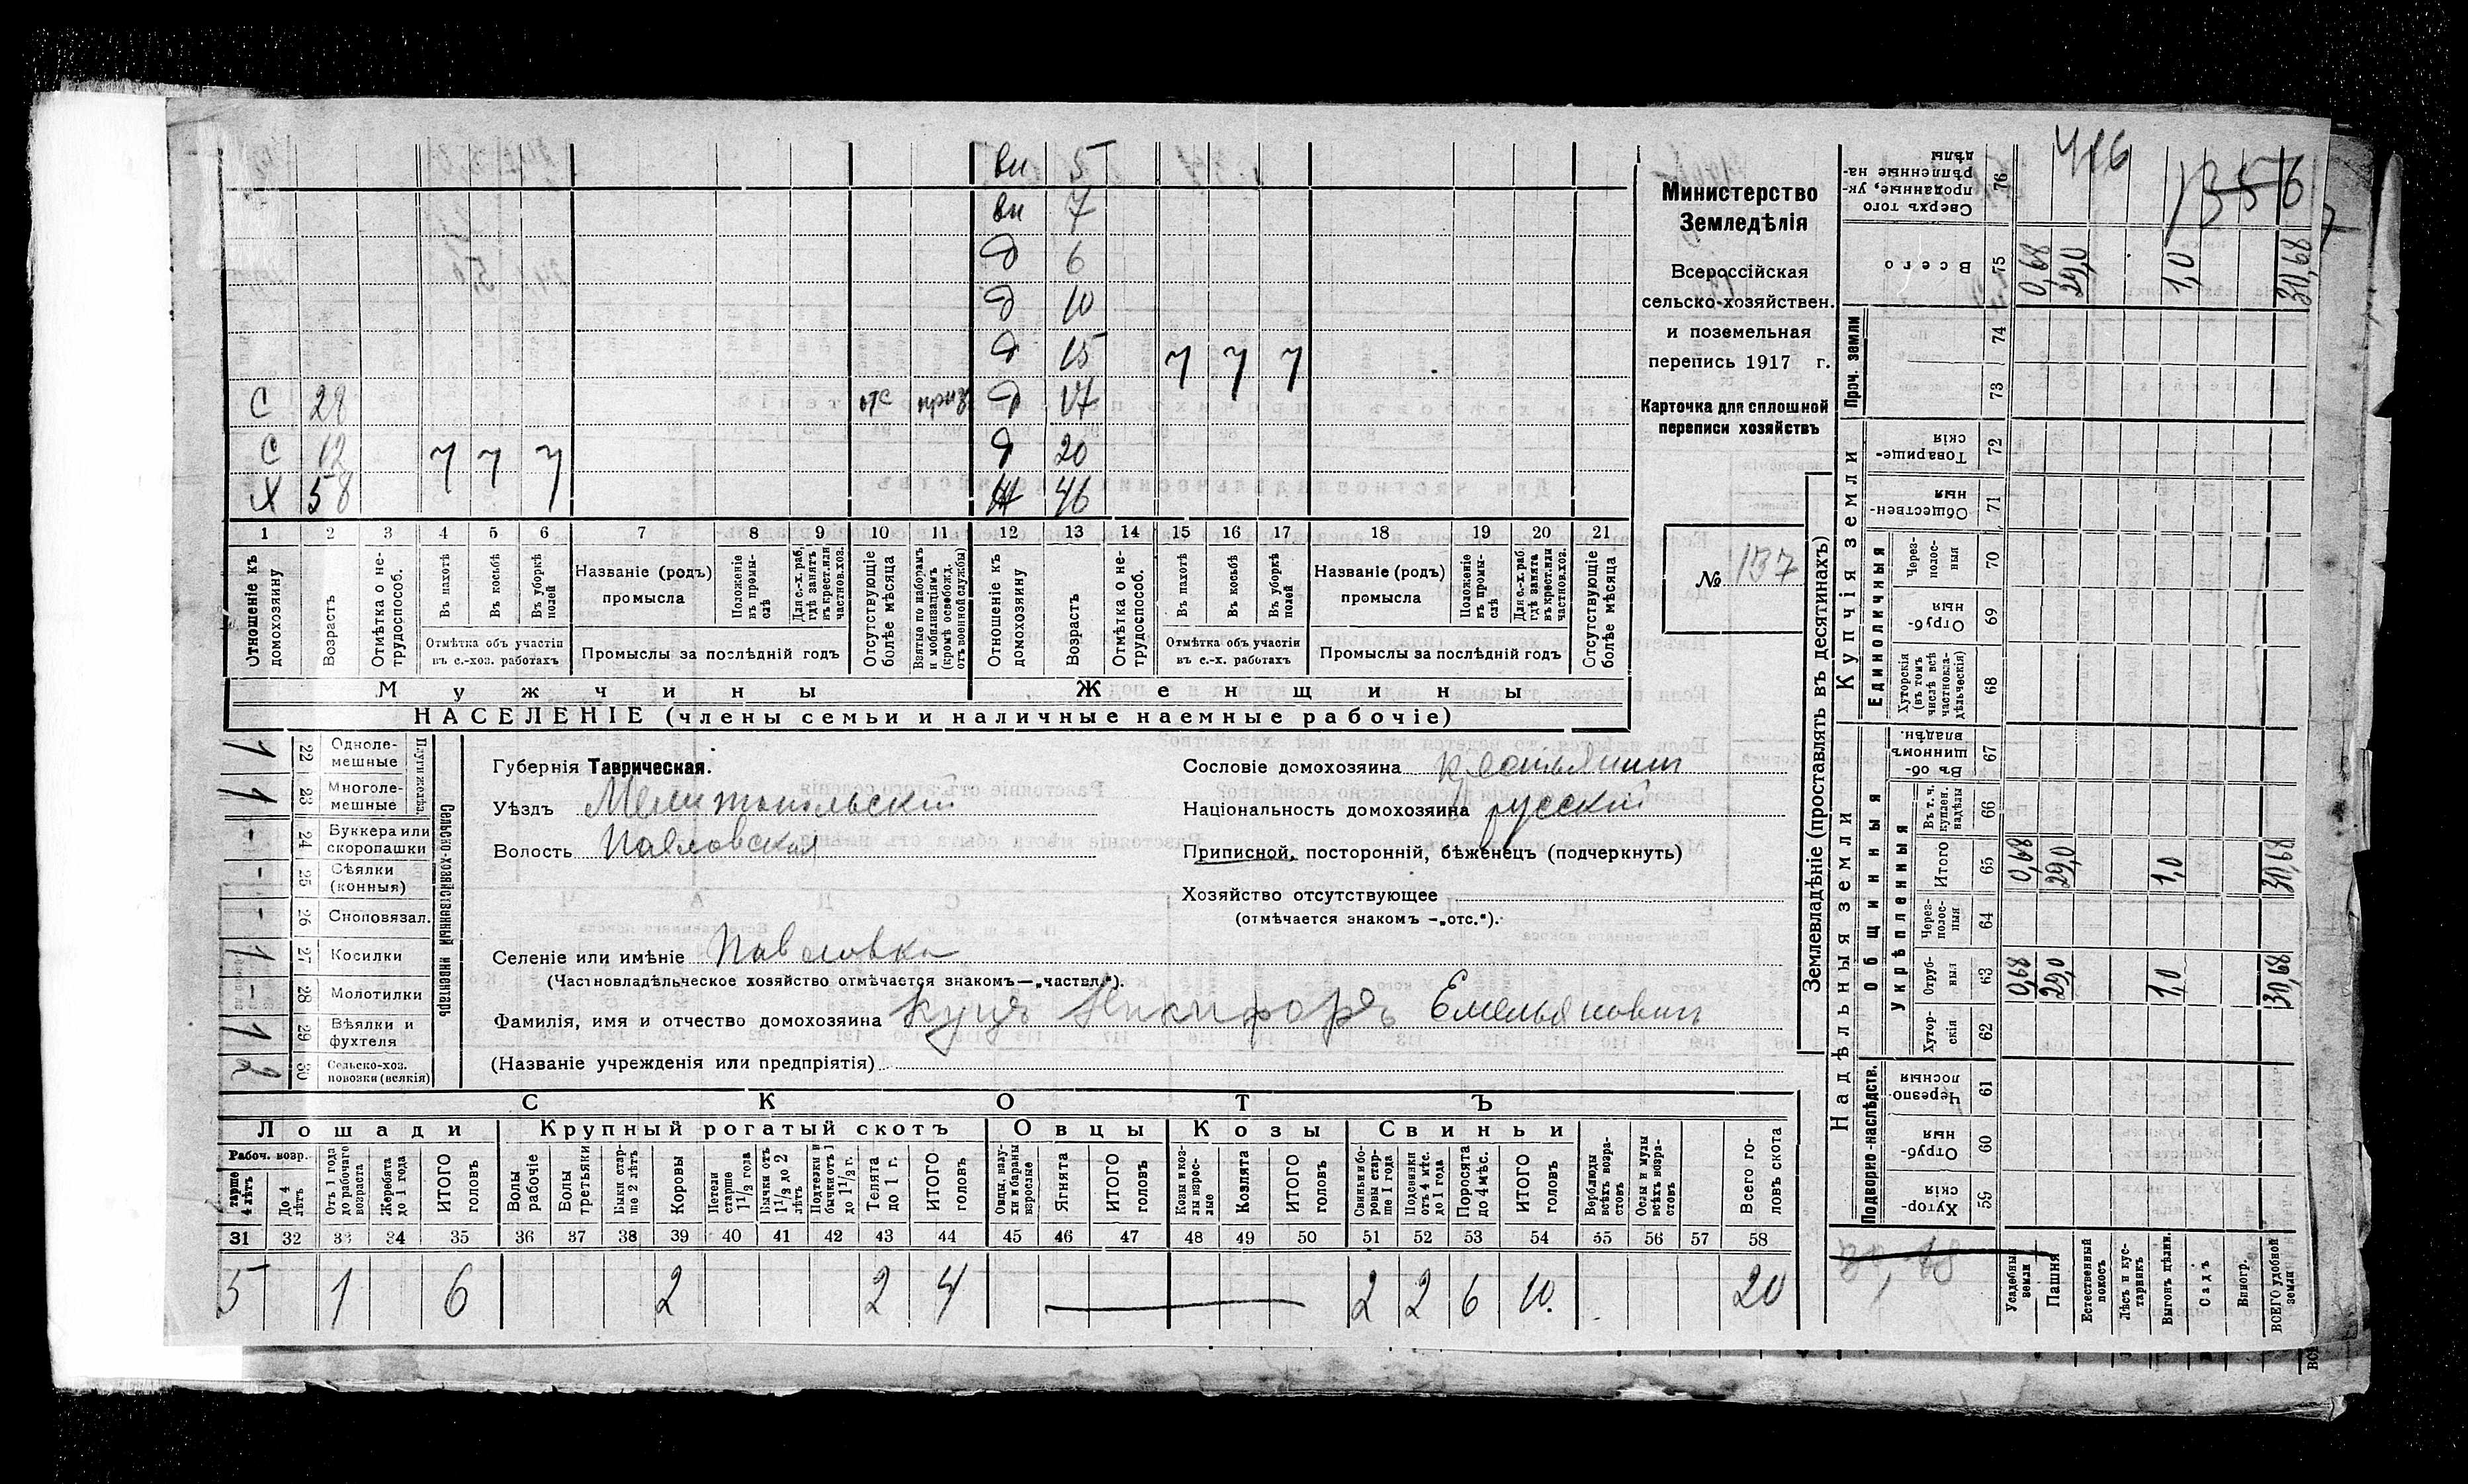 вн 5
вн 7
д 6
д 10
д 15 7 7 7
С 28 отс приз д 17
С 12 7 7 7 д 20
Х 58 ж 46
1 2 3 4 5 6 7 8 9 10 11 12 13 14 15 16 17 18 19 20 21
Отношеніе къ домохозяину
Возрастъ
Отмѣтка о не-трудоспособ.
Въ пахотѣ
Въ косьбѣ
Въ уборкѣ полей
Отмѣтка объ участіи
въ с.-хоз. работахъ
Названіе (родъ)
промысла
Положеніе въ промы-слѣ
Для с.-х. раб. гдѣ занятъ въ крест. или частнов. хоз.
Промыслы за послѣдній годъ
Отсутствующіе болѣе мѣсяца
Взятые по наборамъ и мобилизаціямъ (кромѣ освобожд. отъ военной службы)
Отношеніе къ домохозяину
Возрастъ
Отмѣтка о не-трудоспособ.
Въ пахотѣ
Въ косьбѣ
Въ уборкѣ полей
Отмѣтка объ участіи
въ с.-х. работахъ
Названіе (родъ)
промысла
Положеніе въ промы-слѣ
Для с.-х. раб. гдѣ занята въ крест. или частнов. хоз.
Промыслы за послѣдній годъ
Отсутствующіе болѣе мѣсяца
Мужчины Женщины
НАСЕЛЕНІЕ (члены семьи и наличные наемные рабочіе)
Министерство
Земледѣлія
Всероссійская
сельско-хозяйствен.
и поземельная
перепись 1917 г.
Карточка для сплошной
переписи хозяйствъ
№ 137
1 22 Одноле-мешные
1 23 Многоле-мешные
- 24 Буккера или скоропашки
- 25 Сѣялки (конныя)
- 26 Сноповязал.
1 27 Косилки
- 28 Молотилки
1 29 Вѣялки и фухтеля
2 30 Сельско-хоз. повозки (всякія)
Сельско-хозяйственный инвентарь
Губернія Таврическая.
Уѣздъ Мелитопольскій
Волость Павловская
Селеніе или имѣніе Павловка
(Частновладѣльческое хозяйство отмѣчается знакомъ—„частвл.“).
Фамилія, имя и отчество домохозяина Куцъ Никифоръ Емельяновичъ
(Названіе учрежденія или предпріятія)
Сословіе домохозяина крестьянинъ
Національность домохозяина русскій
Приписной, посторонній, бѣженецъ (подчеркнуть)
Хозяйство отсутствующее
(отмѣчается знакомъ -„отс.“).
СКОТЪ
Лошади Крупный рогатый скотъ Овцы Козы Свиньи
Рабоч. возр.
старше 4 лѣтъ
До 4 лѣтъ
Отъ 1 года до рабочаго возраста
Жеребята до 1 года
ИТОГО головъ
Волы рабочіе
Волы третьяки
Быки стар-ше 2 лѣтъ
Коровы
Нетели старше 1 1/2 года
Бычки отъ 1 1/2 до 2 лѣтъ
Подтелки и бычки отъ 1 до 1 1/2 г.
Телята до 1 г.
ИТОГО головъ
Овцы, валу-хи и бараны взрослые
Ягнята
ИТОГО головъ
Козы и коз-лы взрос-лые
Козлята
ИТОГО головъ
Свиньи и бо-ровы стар-ше 1 года
Подсвинки отъ 4 мѣс. до 1 года
Поросята до 4 мѣс.
ИТОГО головъ
Верблюды всѣхъ возра-стовъ
Ослы и мулы всѣхъ возра-стовъ
Всего го-ловъ скота
31 32 33 34 35 36 37 38 39 40 41 42 43 44 45 46 47 48 49 50 51 52 53 54 55 56 57 58
5 1 6 2 2 4 2 2 6 10. 20
Землевладѣніе (проставлять въ десятинахъ)
Надѣльныя земли Купчія земли Проч. земли
Подворно-наслѣдств.
Общинныя
Укрѣпленныя
Единоличныя
Сверхъ того проданные, ук-рѣпленные на-дѣлы 76 416 1356
Всего 75 0,68 29,0 1,0 30,68
74
73
Товарище-скія 72
Обществен-ныя 71
Через-полос-ныя 70
Отруб-ныя 69
Хуторскія (въ томъ числѣ всѣ частновла-дѣльческія) 68
Въ об-щинномъ владѣн. 67
Въ т. ч. куплен. надѣлы 66
Итого 65 0,68 29,0 1,0 30,68
Через-полос-ныя 64
Отруб-ныя 63 0,68 29,0 1,0 30,68
Хутор-скія 62
Черезпо-лосныя 61
Отруб-ныя 60
Хутор-скія 59
Усадебны земли
Пашня
Естественный покосъ
Лѣсъ и кус-тарникъ
Выгонъ дѣлии.
Садъ
Виногр.
ВСЕГО удобной земли